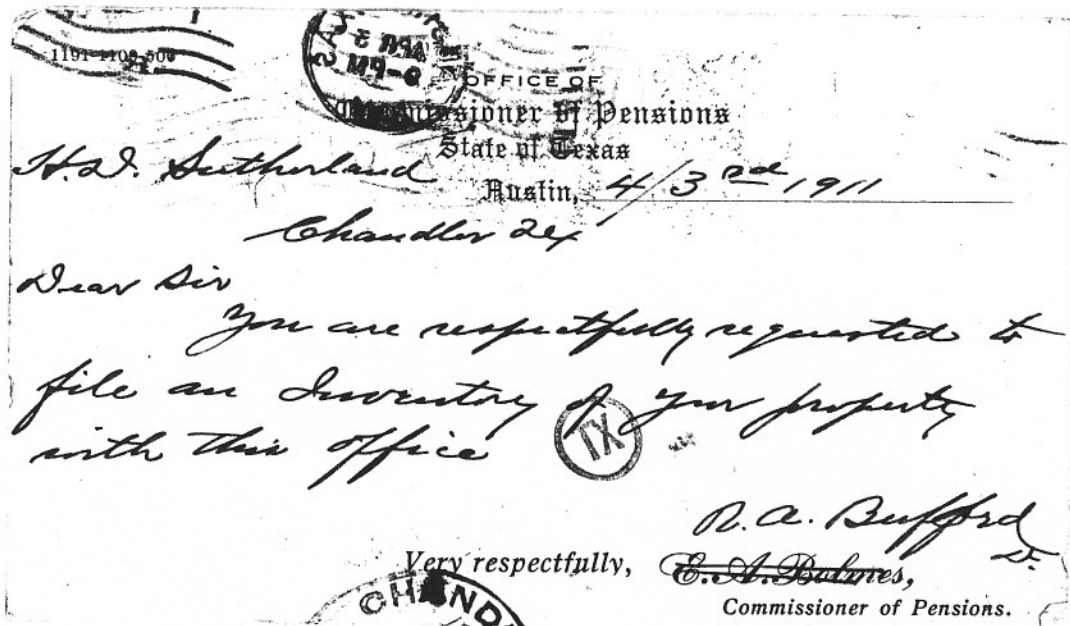 1191-1109-500
OFFICE OF
Commissioner of Pensions
State of Texas
H. D. Sutherland
Austin, 4/3rd 1911
Chandler Tex
Dear Sir
You are respectfully requested to
file an Inventory of your property
with this office
TX
R. A. Bufford
D.
Very respectfully, E. A. Bolmes,
Commissioner of Pensions.
CHAND